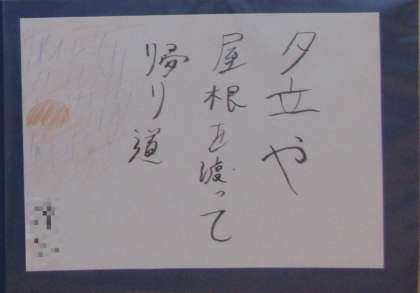 夕立や
屋根を渡って
帰り道